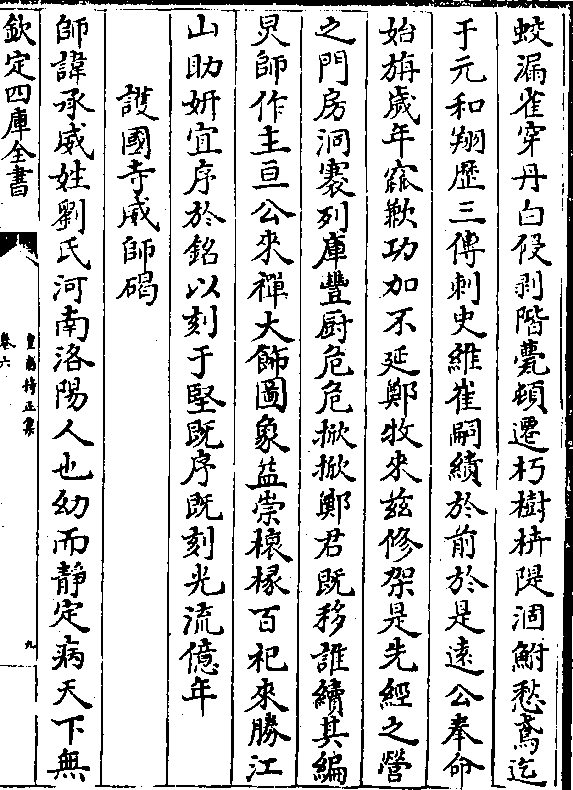 蛟漏雀穿丹白侵剥階甍頓遷朽樹枿隄涸鮒愁鳶迄
于元和翔歷三傳刺史維崔嗣績於前於是逺公奉命
始旃歲年窾歉功加不延鄭牧來兹修架是先經之營
之門房洞褭列庫豐厨危危掀掀鄭君既移誰續其編
炅師作主亘公來禪大飾圖象益崇榱椽百祀來勝江
山助妍宜序於銘以刻于堅既序既刻光流億年
護國寺威師碣
師諱承威姓劉氏河南洛陽人也幼而靜定病天下無
欽定四庫全書
皇甫持正集
卷六
九